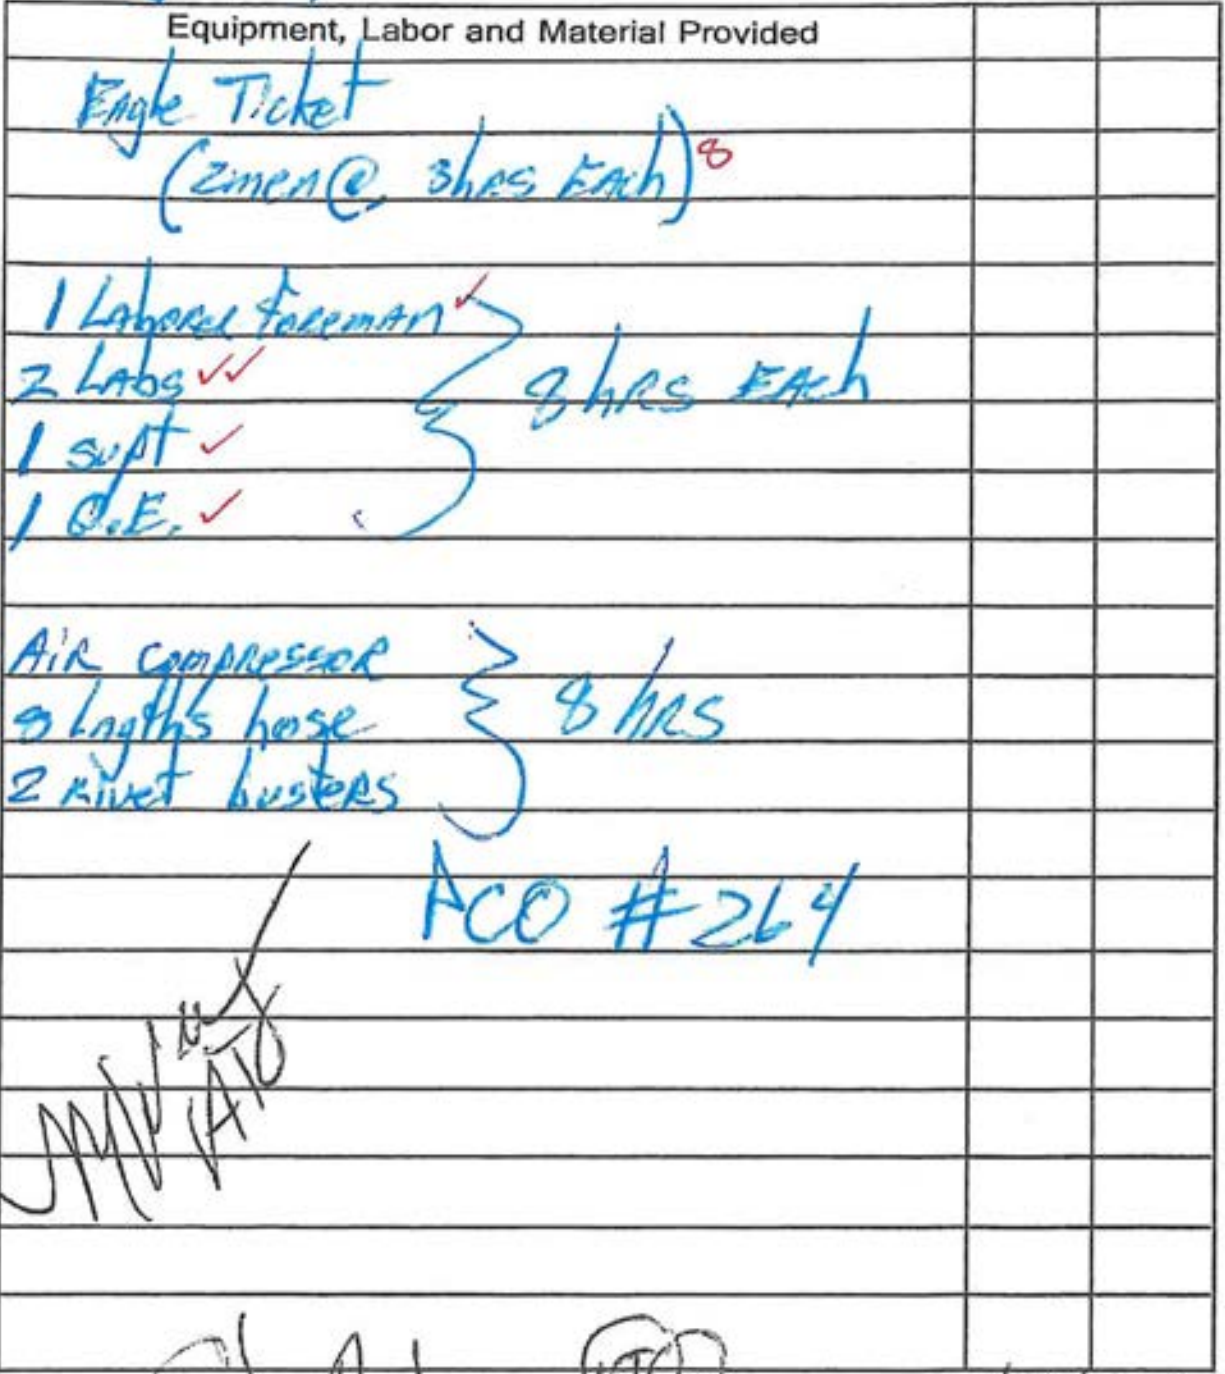 Equipment, Labor and Material Provided
Eagle Ticket
(2men @ 8hrs EAch) 8
1 Laborer Foreman ✓
2 Labs ✓✓
1 supt ✓
1 O.E. ✓
8 hrs EAch
Air compressor
8 lngths hose
2 rivet busters
8 hrs
PCO #264